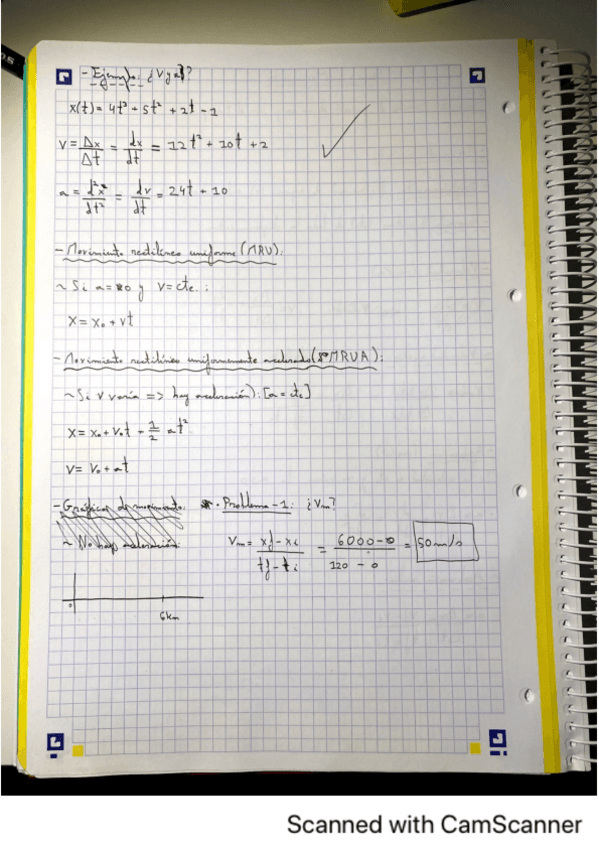 - Ejemplo: ¿V y a?
x(t) = 4t³ + 5t² + 2t - 1
v = Δx/Δt = dx/dt = 12t² + 10t + 2
a = d²x/dt² = dv/dt = 24t + 10
- Movimiento rectilíneo uniforme (MRU):
~ Si a = 0 y v = cte. :
x = x₀ + vt
- Movimiento rectilíneo uniformemente acelerado (MRUA):
~ Si v varía => hay aceleración): [a = cte]
x = x₀ + v₀t + 1/2 at²
v = v₀ + at
- Gráficas de movimiento:
~ No hay aceleración:
· Problema - 1: ¿Vm?
Vm = xf - xi / tf - ti = 6000 - 0 / 120 - 0 = 50 m/s
0
6km
Scanned with CamScanner